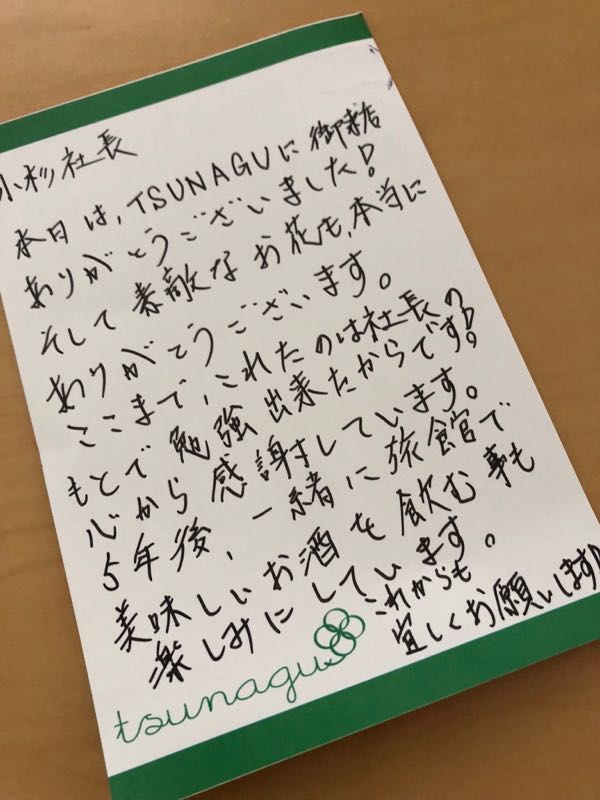 小杉社長
本日は、TSUNAGUに御来店
ありがとうございました!
そして素敵なお花も、本当に
ありがとうございます。
ここまで、これたのは社長の
もとで勉強出来たからです!
心から感謝しています。
5年後、一緒に旅館で
美味しいお酒を飲む事も
楽しみにしています。
これからも
宜しくお願いします!
tsunagu